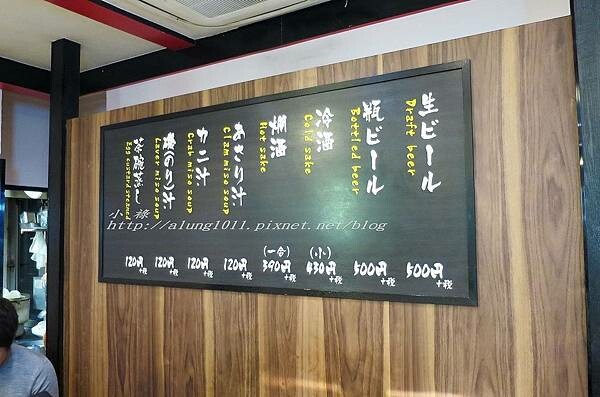 生ビール
Draft beer
500円
+税
瓶ビール
Bottled beer
500円
+税
冷酒
Cold sake
(小)
430円
+税
熱酒
Hot sake
(一合)
390円
+税
あさり汁
Clam miso soup
120円
+税
カニ汁
Crab miso soup
120円
+税
(のり)汁
Laver miso soup
120円
+税
Egg custard steamed
120円
+税
小 祿
http://alung1011.pixnet.net/blog